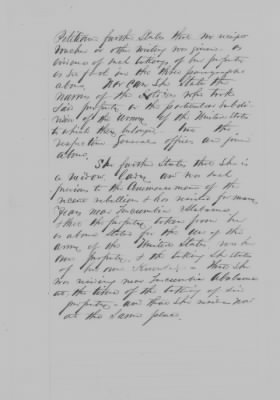 Petitioner further States that no receipt
voucher or other writing was given as
evidence of such taking of her property
as set forth in the three paragraphs
above. Nor can she state the
names of the Officers who took
said property or the particular subdi-
vision of the army of the United States
to which they belonged. But the
respective General officers are given
above.
She further States that she is
a widow lady, and was such
previous to the commencement of the
recent rebellion & has resided for many
years near Tuscumbia Alabama
& that the property taken from her
as above states for the use of the
army of the United States was her
own property, & the taking she states
of her own knowledge - that she
was residing near Tuscumbia Alabama
at the time of the taking of said
property - and that she resides now
at the same place.